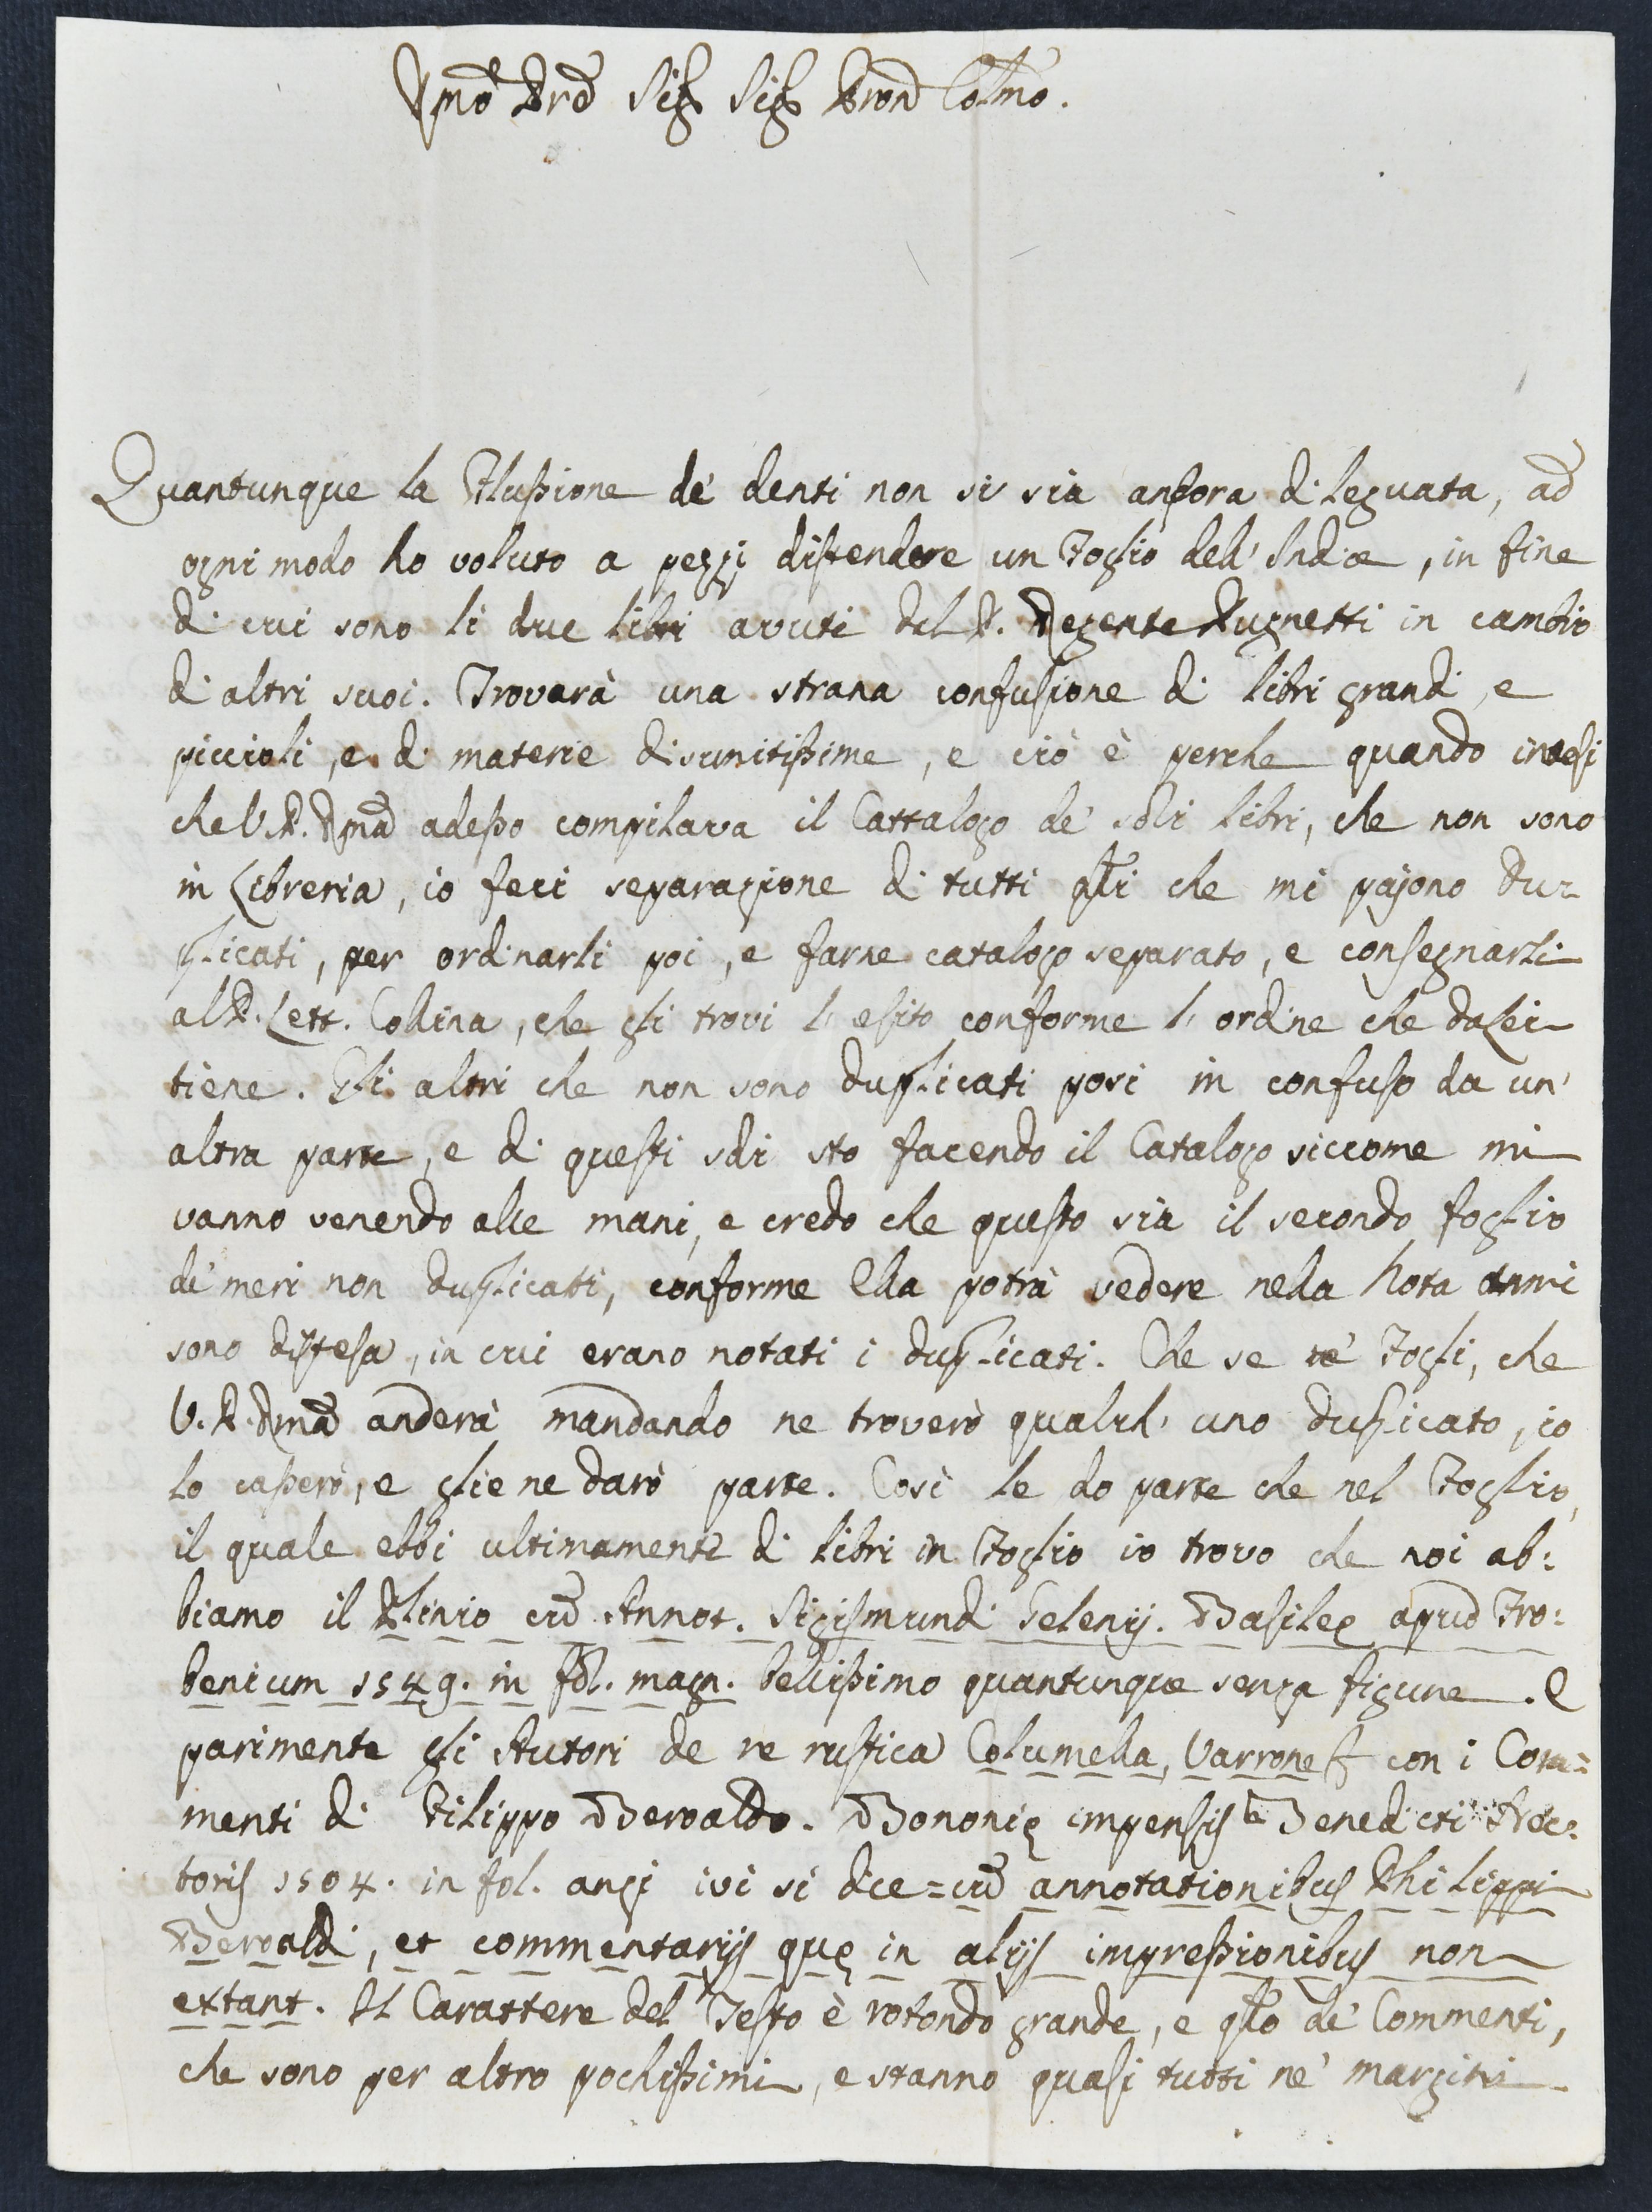 Rmo Prē Sig.r Sig.r Pron Colmo.
Quantunque la Flussione de' denti non si sia ancora dileguata, ad
ogni modo ho voluto a pezzi distendere un Foglio dell'Indice, in fine
di cui sono li due libri avuti dal P. Regente Rugnetti in cambio
di altri suoi. Trovarà una strana confusione di libri grandi, e
piccioli, e di materie disunitissime, e ciò è perche quando intesi
che V. P. Rma adesso compilava il Cattalogo de' soli libri, che non sono
in Libreria, io feci separazione di tutti qlli che mi pajono du=
plicati, per ordinarli poi, e farne catalogo separato, e consegnarli
al P. Lett. Collina, che gli trovi l'esito conforme l'ordine che da Lei
tiene. Gli altri che non sono duplicati posi in confuso da un'
altra parte, e di questi soli sto facendo il Catalogo siccome mi
vanno venendo alle mani, e credo che questo sia il secondo foglio
de' meri non duplicatti, conforme Ella potrà vedere nella Nota anni
sono distesa, in cui erano notati i duplicati. Che se ne' Fogli, che
V. P. Rma anderà mandando ne troverò qualch' uno duplicato, io
lo casserò, e gliene darò parte. Così le do parte che nel Foglio,
il quale ebbi ultimamente di libri in Foglio io trovo che noi ab:
biamo il Plinio cū Annot. Sigismundi Gelenij. Basileę apud Fro:
benium 1549. in fol. magn. bellissimo quantunque senza figure. E
parimente gli Autori de re rustica Columella, Varrone &c con i Com=
menti di Filippo Beroaldo. Bononię impensis Benedicti Hec:
toris 1504. in fol. anzi ivi si dice = cū annotationibus Philippi
Beroaldi, et commentarijs quę in alijs impressionibus non
extant. Il Carattere del Testo è rotondo grande, e qllo de' Commenti,
che sono per altro pochissimi, e stanno quasi tutti ne' margini